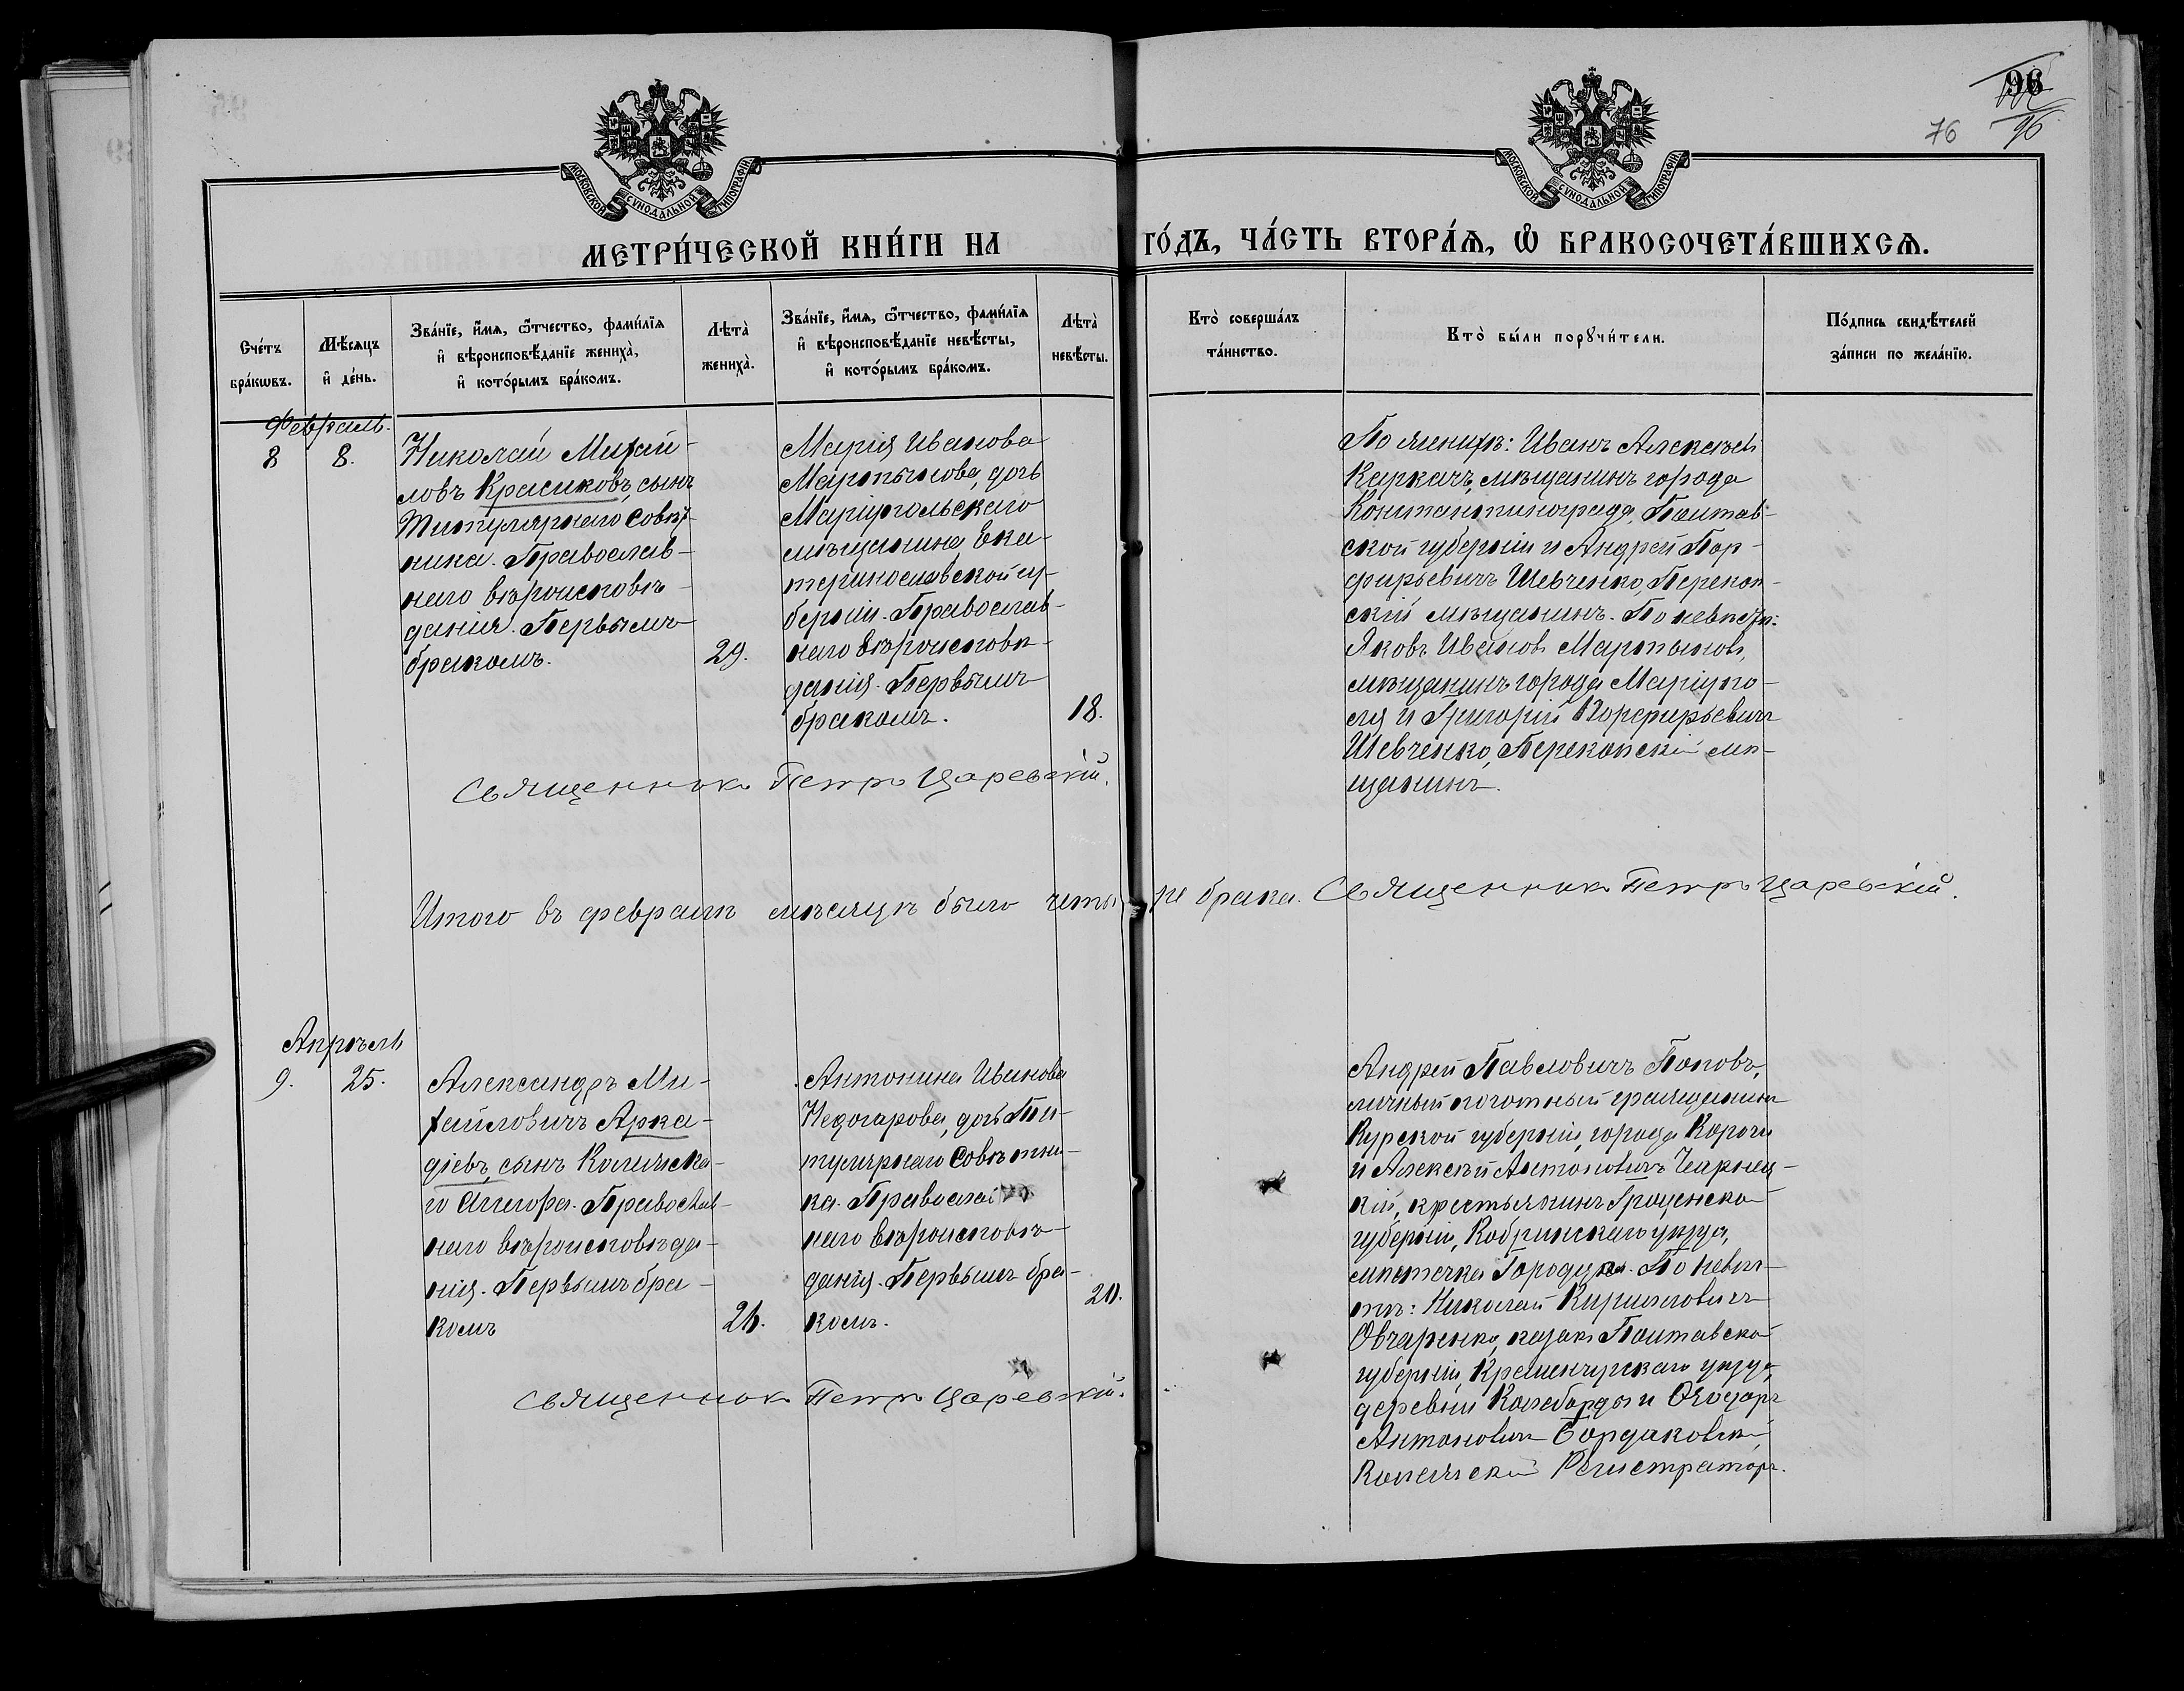 96
76
96
МОСКОВСКОЙ СУНОДАЛЬНОЙ ТИПОГРАФІИ
МОСКОВСКОЙ СУНОДАЛЬНОЙ ТИПОГРАФІИ
МЕТРИ́ЧЕСКОЙ КНИ́ГИ НА ГО́ДЪ, ЧА́СТЬ ВТОРА́Ѧ, Ѽ БРАКОСОЧЕТА́ВШИХСѦ.
Сче́тъ
бра́кѡвъ.
Мѣ́сяцъ
и҆ де́нь.
Зва́нїе, и҆́мѧ, ѻ҆́тчество, фами́лїѧ
и҆ вѣроисповѣ́данїе жениха̀,
и҆ кото́рымъ бра́комъ.
Лѣта̀
жениха̀.
Зва́нїе, и҆́мѧ, ѻ҆́тчество, фами́лїѧ
и҆ вѣроисповѣ́данїе невѣ́сты,
и҆ кото́рымъ бра́комъ.
Лѣта̀
невѣ́сты.
Кто̀ соверша́лъ
та́инство.
Кто̀ бы́ли порꙋчи́тели.
По́дпись свидѣ́телей
за́писи по жела́нїю.
Февраль.
8
8.
Николай Михай-
ловъ Красиковъ, сынъ
Титулярнаго Совѣт-
ника. Православ-
наго вѣроисповѣ-
данія. Первымъ
бракомъ.
29.
Марія Иванова
Мартынова, дочь
Маріупольскаго
мѣщанина, Ека-
теринославской гу-
берніи. Православ-
наго вѣроисповѣ-
данія. Первымъ
бракомъ.
18.
По женихѣ: Иванъ Алексѣевъ
Каркачъ, мѣщанинъ города
Константинограда, Полтав-
ской губерніи и Андрей Пор-
фирьевичъ Шевченко, Перекоп-
скій мѣщанинъ. По невѣстѣ:
Яковъ Ивановъ Мартыновъ,
мѣщанинъ города Маріупо-
ля и Григорій Порфирьевичъ
Шевченко, Перекопскій мѣ-
щанинъ.
Священникъ Петръ Царевскій.
Итого въ февралѣ мѣсяцѣ было четыре брака. Священникъ Петръ Царевскій.
Апрѣль
9.
25.
Александръ Ми-
хайловичъ Арка-
діевъ, сынъ Коллежска-
го Ассесора. Православ-
наго вѣроисповѣда-
нія. Первымъ бра-
комъ
26.
Антонина Иванова
Недогарова, дочь Ти-
тулярнаго Совѣтни-
ка. Православ
наго вѣроисповѣ-
данія. Первымъ бра-
комъ.
Андрей Павловичъ Поповъ,
личный почотный гражданинъ
Курской губерніи, города Корочи
и Алексѣй Антоновичъ Чарнец-
кій, крестьянинъ Гродненской
губерніи, Кобринскаго уѣзда,
мѣстечка Городца. По невѣс-
тѣ: Николай Кирилловичъ
Овчаренко, казакъ Полтавской
губерніи, Кременчугскаго уѣзда,
деревни Келебарды и Ѳеодоръ
Антоновичъ Бордаковскій,
Коллежскій Регистраторъ.
Священникъ Петръ Царевскій.